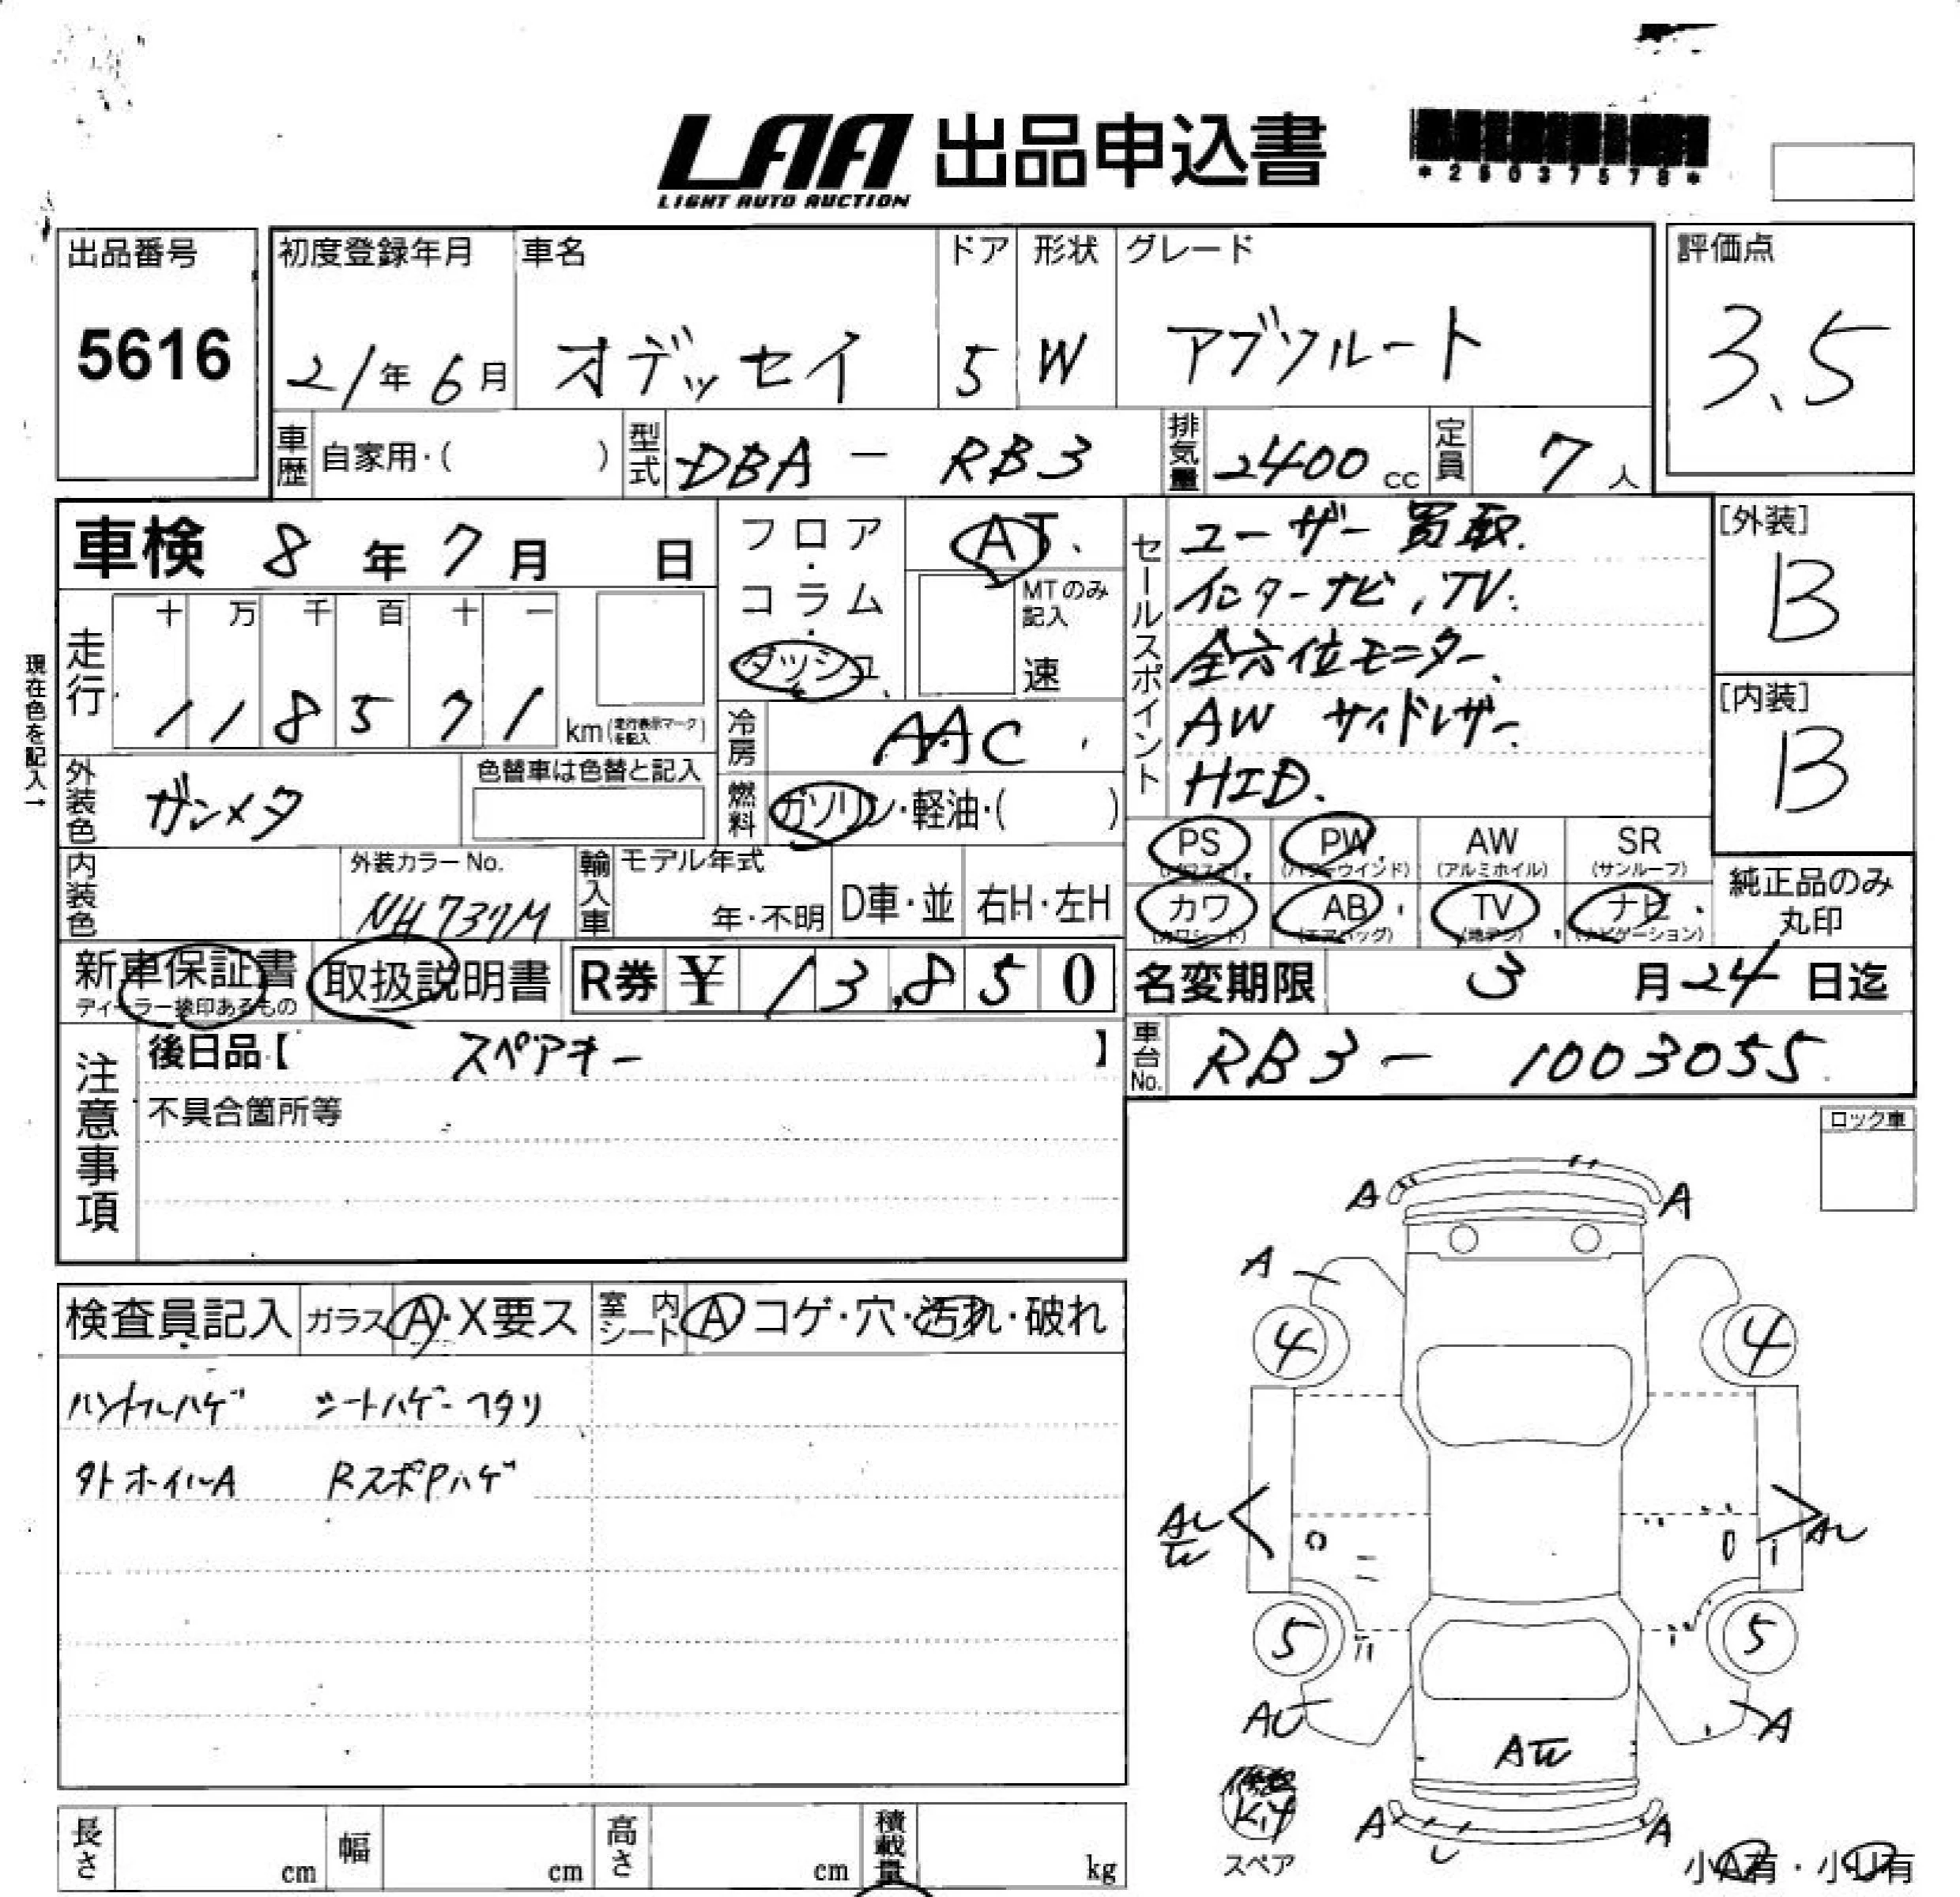 LAA 出品申込書
LIGHT AUTO AUCTION
出品番号
5616
初度登録年月
21年6月
車名
オデッセイ
ドア
5
形状
W
グレード
アブソルート
評価点
3.5
車歴 自家用・( )
型式 DBA - RB3
排気量 2400 cc
定員 7 人
車検 8年7月 日
フロア・コラム・ダッシュ
AT
MTのみ記入
速
セールスポイント
ユーザー買取.
インターナビ, TV.
全方位モニター
AW サイドレザー
HID.
[外装]
B
[内装]
B
現在色を記入→
走行
十 万 千 百 十 一
1 1 8 5 7 1
km(走行表示マークを記入)
冷房 AAC
燃料 ガソリン・軽油・( )
外装色 ガンメタ
色替車は色替と記入
内装色
外装カラーNo.
NH737M
輸入車
モデル年式
年・不明
D車・並
右H・左H
PS PW AW SR
(パワステ) (パワーウインド) (アルミホイル) (サンルーフ)
カワ AB TV ナビ
(カワシート) (エアバッグ) (地デジ) (ナビゲーション)
純正品のみ
丸印
新車保証書
ディーラー捺印あるもの
取扱説明書
R券 ¥ 13,850
名変期限 3月24日迄
注意事項
後日品【 スペアキー 】
不具合箇所等
車台No. RB3- 1003055
ロック車
検査員記入
ガラス A・X要ス
室内シート A コゲ・穴・汚れ・破れ
ハンドルハゲ シートハゲ ヘタリ
タトホイルA RスポPハゲ
A A
A
4 4
AU AU
5 5
AU A
A A
U
Kit
スペア
小A有・小U有
長さ cm
幅 cm
高さ cm
積載量 kg